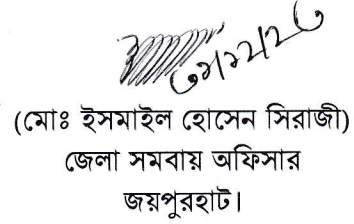 (মোঃ ইসমাইল হোসেন সিরাজী)
জেলা সমবায় অফিসার
জয়পুরহাট।